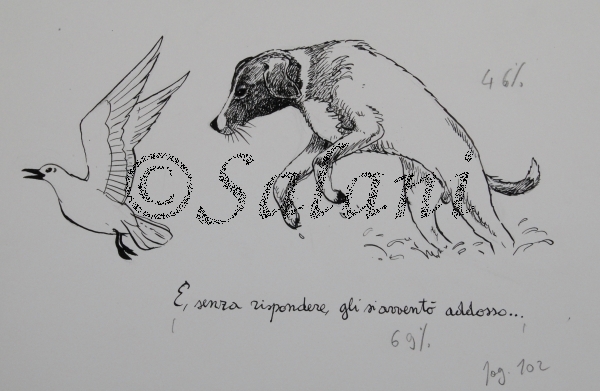 46%
© Salani
E, senza rispondere, gli s'avventò addosso...
69%
pag. 102